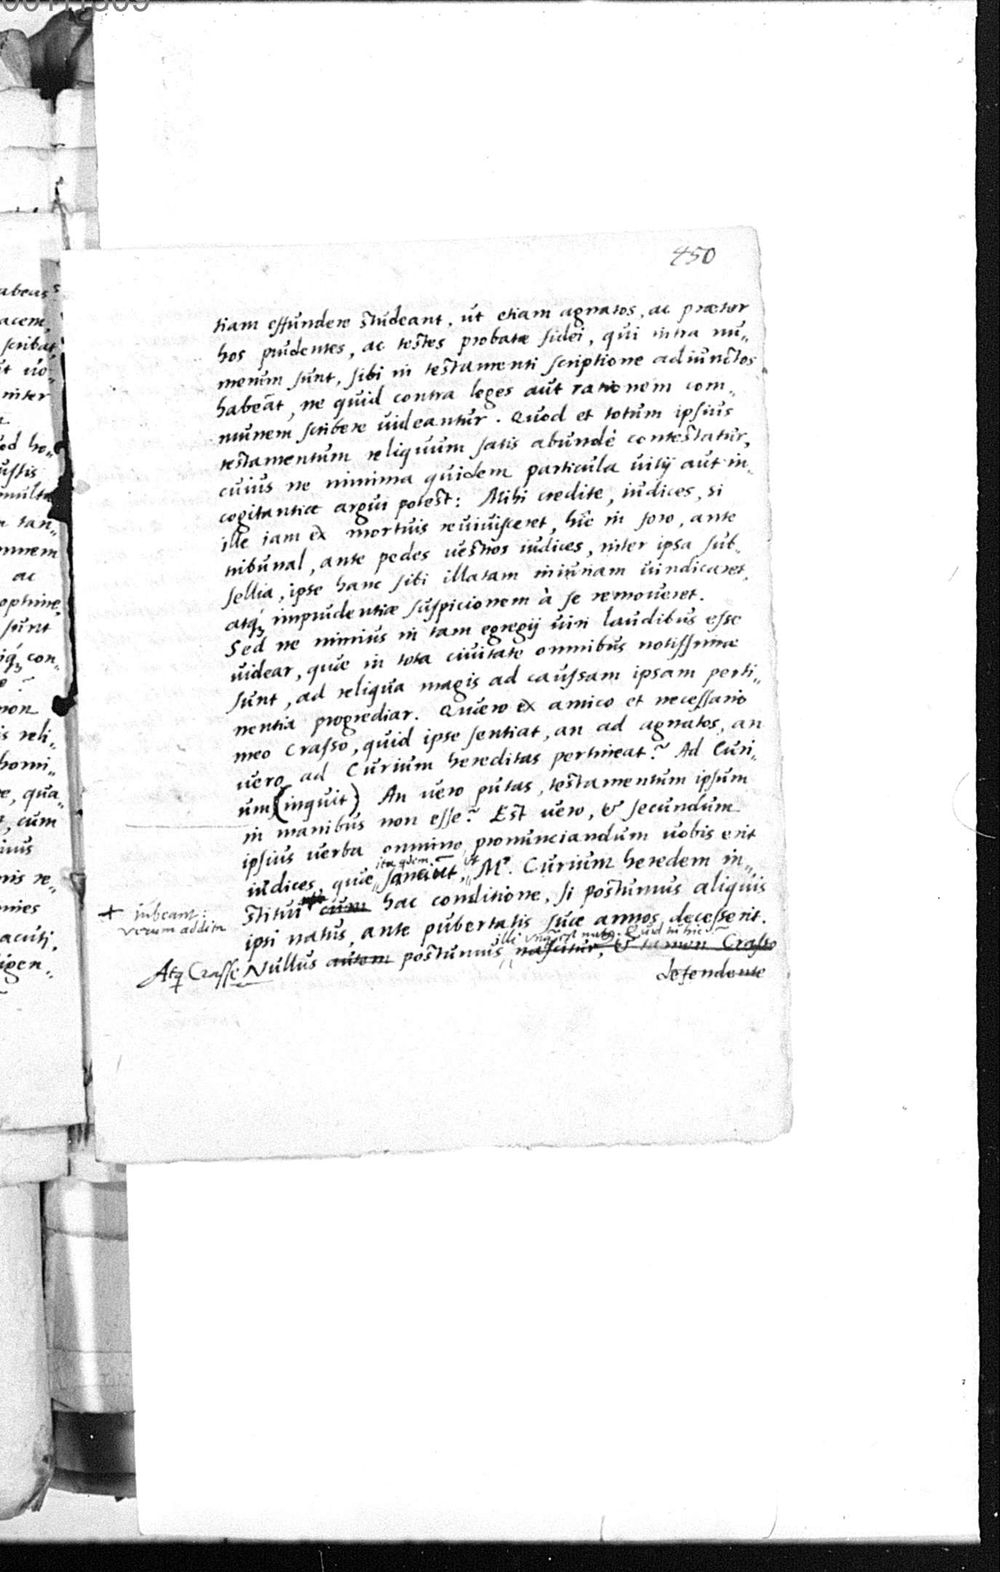 450
tiam effundere studeant, ut etiam agnatos, ac præter
hos prudentes, ac testes probatæ fidei, qui intra nu„
merum sunt, sibi in testamenti scriptione adiunctos
habeãt, ne quid contra leges aut rationem com„
munem scribere uideantur. Quod et totum ipsius
testamentum reliquum satis abundè contestatur,
cuius ne minima quidem particula uitij aut in„
cogitantiæ argui potest: Mihi credite, iudices, si
ille iam ex mortuis reuiuisceret, hîc in foro, ante
tribunal, ante pedes uestros iudices, inter ipsa sub„
sellia, ipse hanc sibi illatam iniuriam uindicaret,
atq́; imprudentiæ suspicionem à se remoueret.
Sed ne nimius in tam egregij uiri laudibus esse
uidear, quæ in tota ciuitate omnibus notissimæ
sunt, ad reliqua magis ad caussam ipsam perti„
nentia progrediar. Quæro ex amico et necessario
meo Crasso, quid ipse sentiat, an ad agnatos, an
uero ad Curium hereditas pertineat? Ad Curi„
um (inquit) An uero putas, testamentum ipsum
in manibus non esse? Est uero, & secundum
ipsius uerba omnino pronunciandum uobis erit
iudices, quæ sanciũt, M. Curium heredem in„
stitui cum hac conditione, si postumus aliquis
+ iubeant:
verum addita
ipsi natus, ante pubertatis suæ annos decesserit.
illi Quid tu hic?
Atq Crasse Nullus autem postumus nascitur, & tamen Crasso
defendente